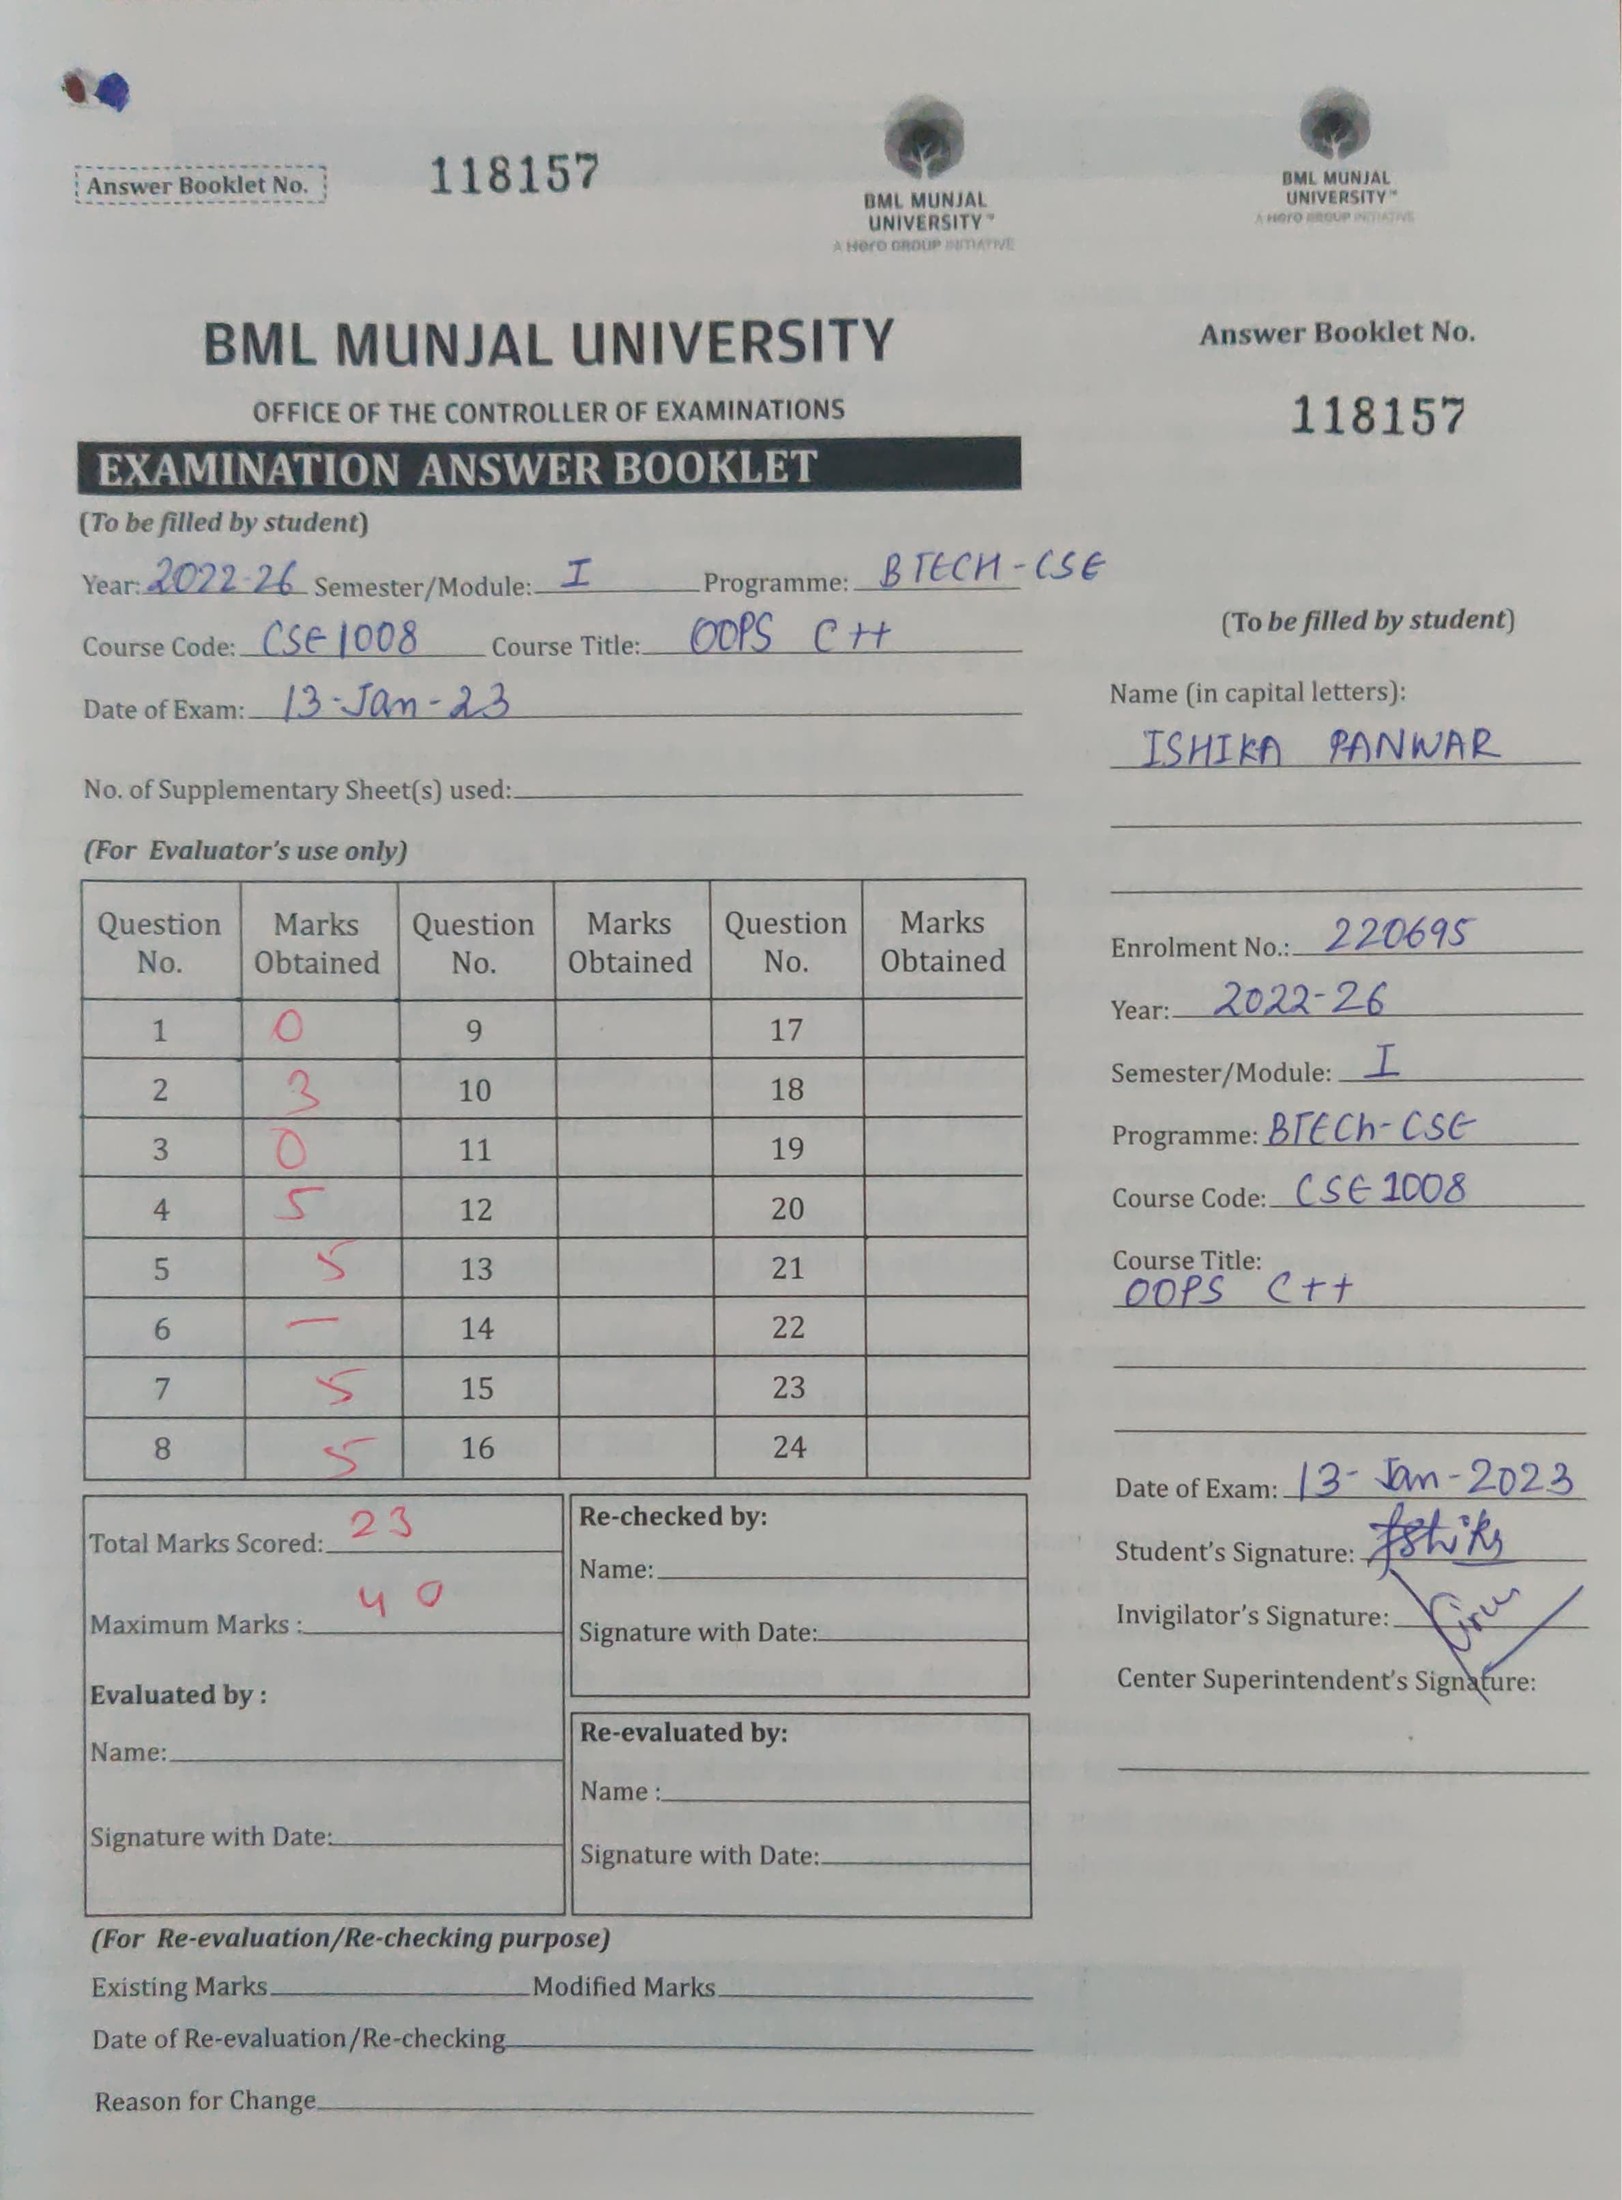 Answer Booklet No.
118157
BML MUNJAL
UNIVERSITY™
A Hero GROUP INITIATIVE
BML MUNJAL UNIVERSITY
OFFICE OF THE CONTROLLER OF EXAMINATIONS
EXAMINATION ANSWER BOOKLET
(To be filled by student)
Year: 2022-26 Semester/Module: I Programme: BTECH-CSE
Course Code: CSE1008 Course Title: OOPS C++
Date of Exam: 13-Jan-23
No. of Supplementary Sheet(s) used:
(For Evaluator's use only)
Question No. Marks Obtained Question No. Marks Obtained Question No. Marks Obtained
1 0 9 17
2 3 10 18
3 0 11 19
4 5 12 20
5 5 13 21
6 — 14 22
7 5 15 23
8 5 16 24
Total Marks Scored: 23
Maximum Marks : 40
Evaluated by :
Name:
Signature with Date:
Re-checked by:
Name:
Signature with Date:
Re-evaluated by:
Name :
Signature with Date:
(For Re-evaluation/Re-checking purpose)
Existing Marks Modified Marks
Date of Re-evaluation/Re-checking
Reason for Change
BML MUNJAL
UNIVERSITY™
A Hero GROUP INITIATIVE
Answer Booklet No.
118157
(To be filled by student)
Name (in capital letters):
ISHIKA PANWAR
Enrolment No.: 220695
Year: 2022-26
Semester/Module: I
Programme: BTECh-CSE
Course Code: CSE1008
Course Title:
OOPS C++
Date of Exam: 13-Jan-2023
Student's Signature:
Invigilator's Signature:
Center Superintendent's Signature: